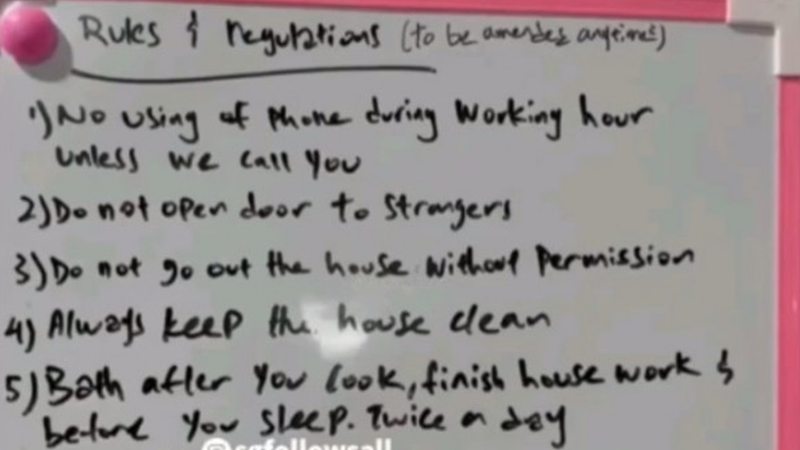 Rules & regulations (to be amended anytimes)
1) No using of phone during working hour
unless we call you
2) Do not open door to strangers
3) Do not go out the house without permission
4) Always keep the house clean
5) Bath after you cook, finish house work &
before you sleep. Twice a day
@sgfollowsall